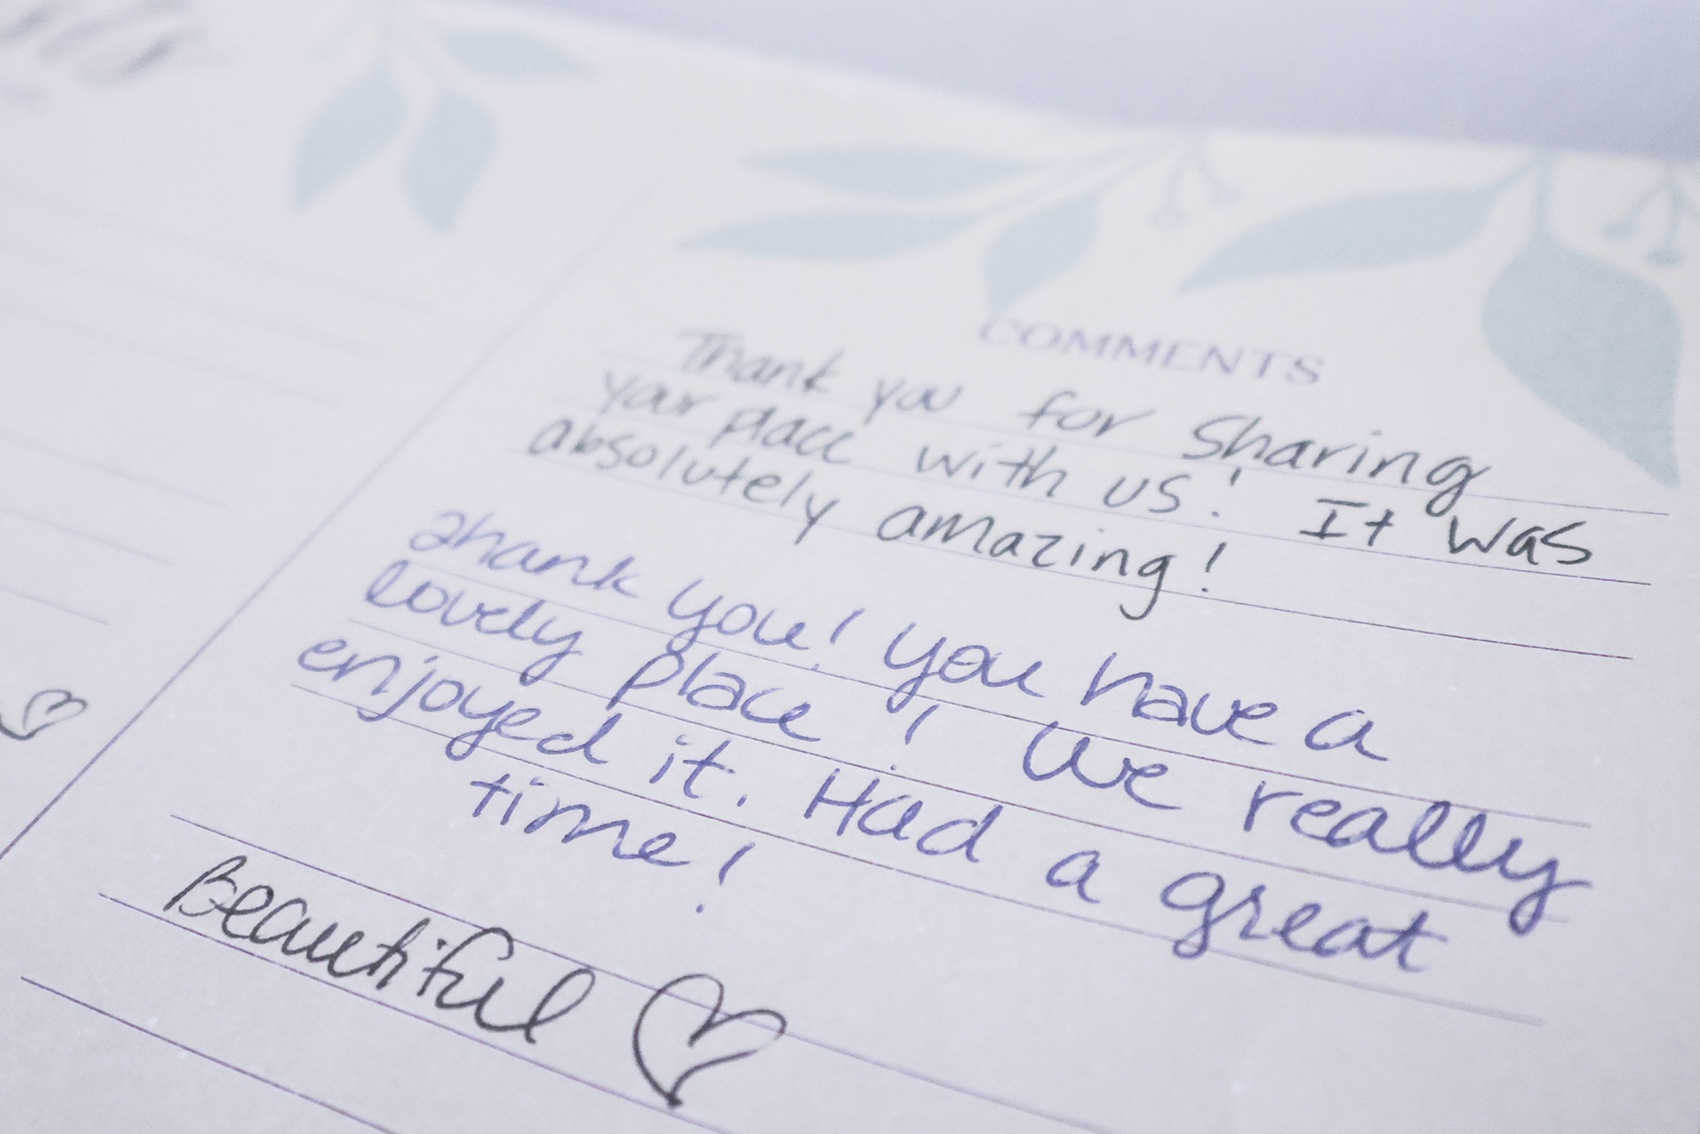 COMMENTS
Thank you for Sharing
your place with us! It was
absolutely amazing!
Thank you! You have a
lovely place! We really
enjoyed it. Had a great
time!
Beautiful